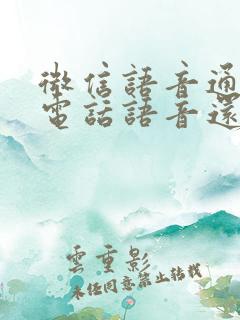 微信語音通
電話語音還
雲重影
未經同意禁止轉載